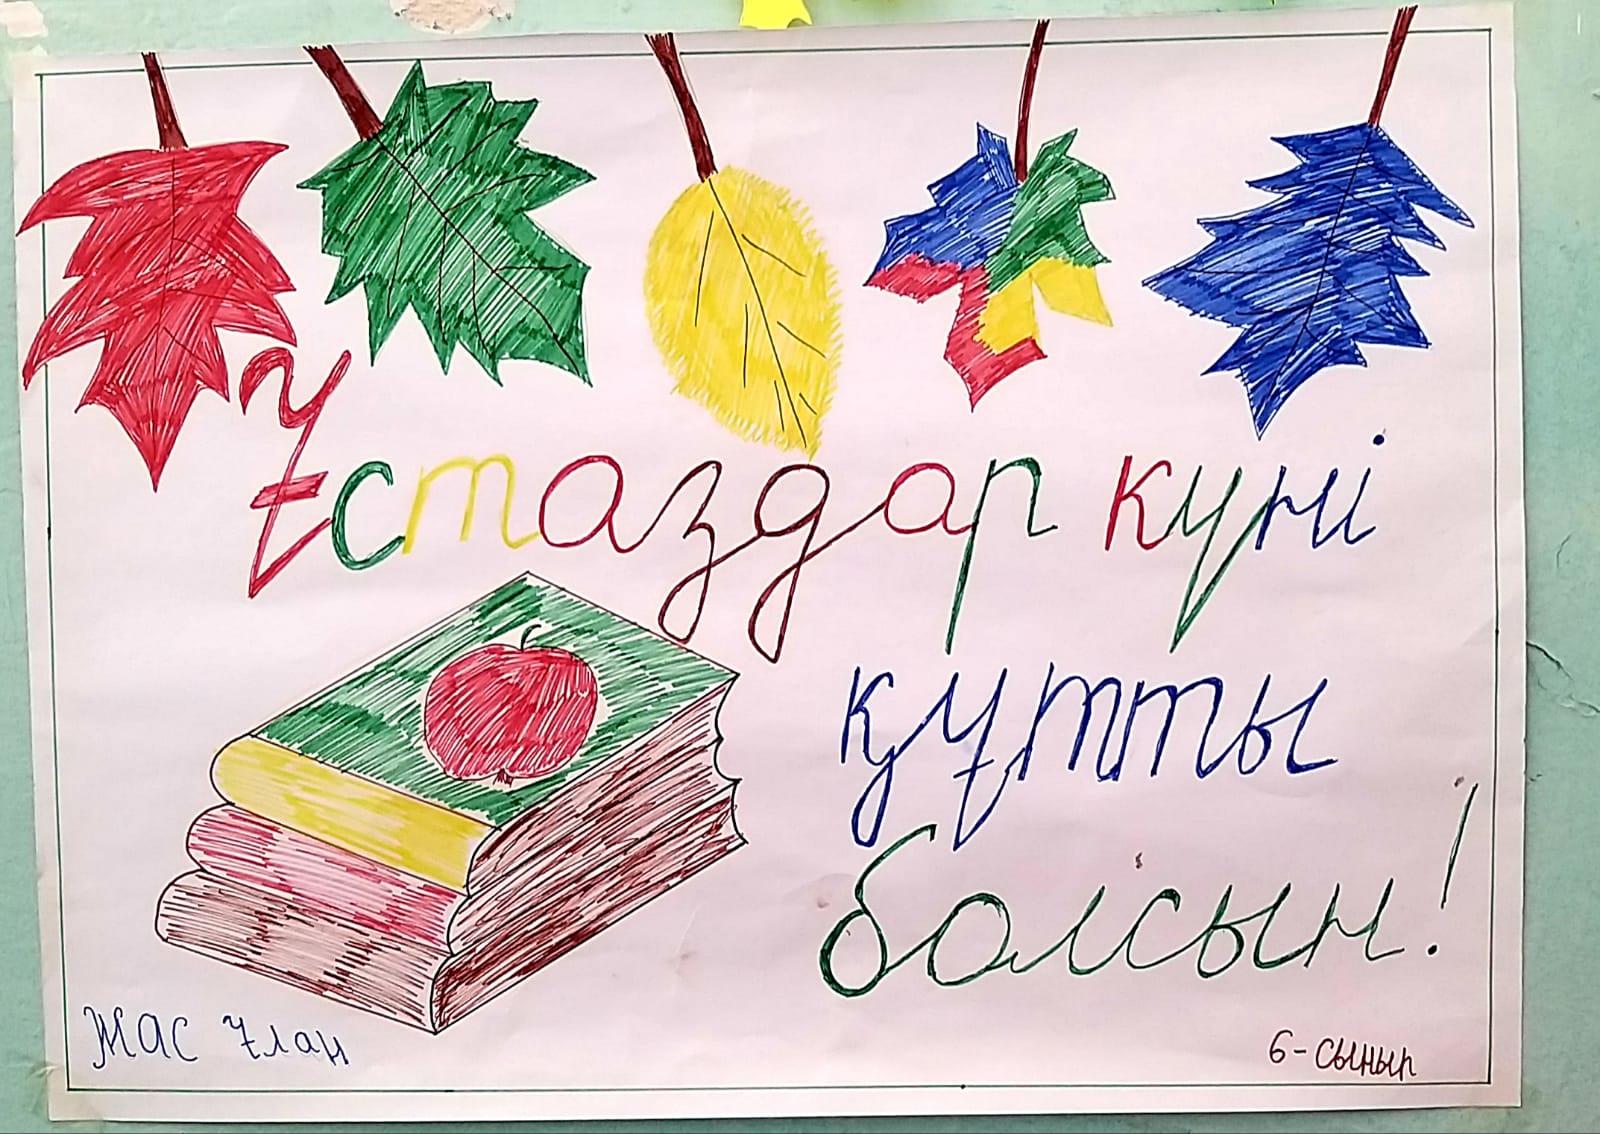 Ұстаздар күні
құтты
болсын!
Жас Ұлан
6-сынып